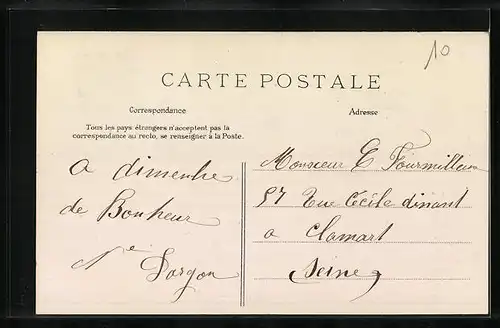 10
CARTE POSTALE
Correspondance
Adresse
Tous les pays étrangers n'acceptent pas la
correspondance au recto, se renseigner à la Poste.
a dimenhe
de Bonheur
Monsieur E Fourmillon
57 Rue Cécile dinant
a Clamart
Seine